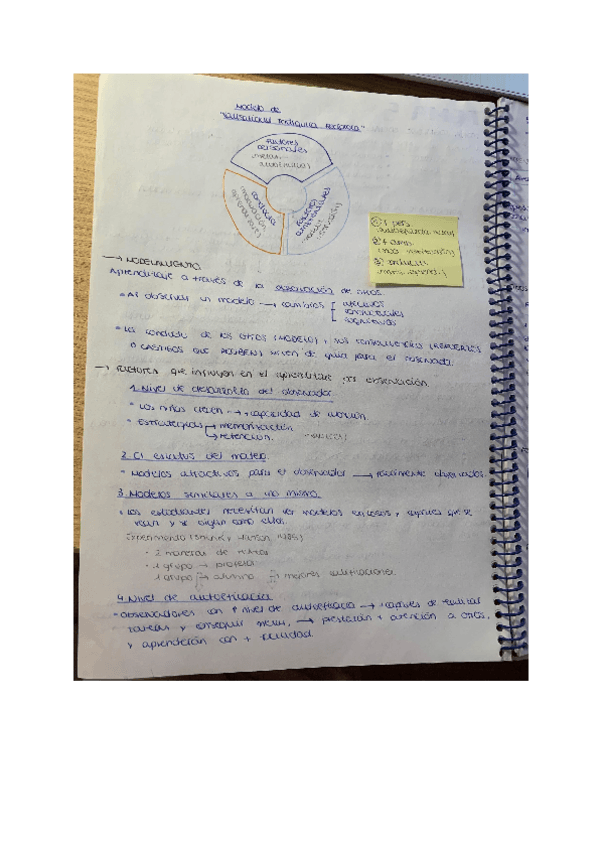 Modelo de
"Causalidad Triádica Recíproca"
Factores
personales
(metas...
autoeficacia)
conducta
Factores
ambientales
→ MODELAMIENTO
Aprendizaje a través de la observación de otros
* Al observar un modelo → cambios
afectivos
conductuales
cognitivos
* La conducta de los otros (MODELO) y sus consecuencias (REFUERZOS
o CASTIGOS que reciben) sirven de guía para el observador.
→ FACTORES que influyen en el aprendizaje por observación.
1. Nivel de desarrollo del observador.
* Los niños crecen → + capacidad de atención.
* Estrategias → memorización
→ retención.
2. El estatus del modelo.
* Modelos atractivos para el observador → fácilmente observados.
3. Modelos similares a uno mismo.
* Los estudiantes necesitan ver modelos exitosos y capaces que se
vean y se oigan como ellos.
Experimento (Schunk y Hanson, 1985)
· 2 maneras de restas
· 1 grupo → profesor
1 grupo → alumno → mejores calificaciones.
4. Nivel de autoeficacia
* Observadores con + nivel de autoeficacia → + capaces de realizar
tareas y conseguir metas, → prestarán + atención a otros,
y aprenderán con + facilidad.